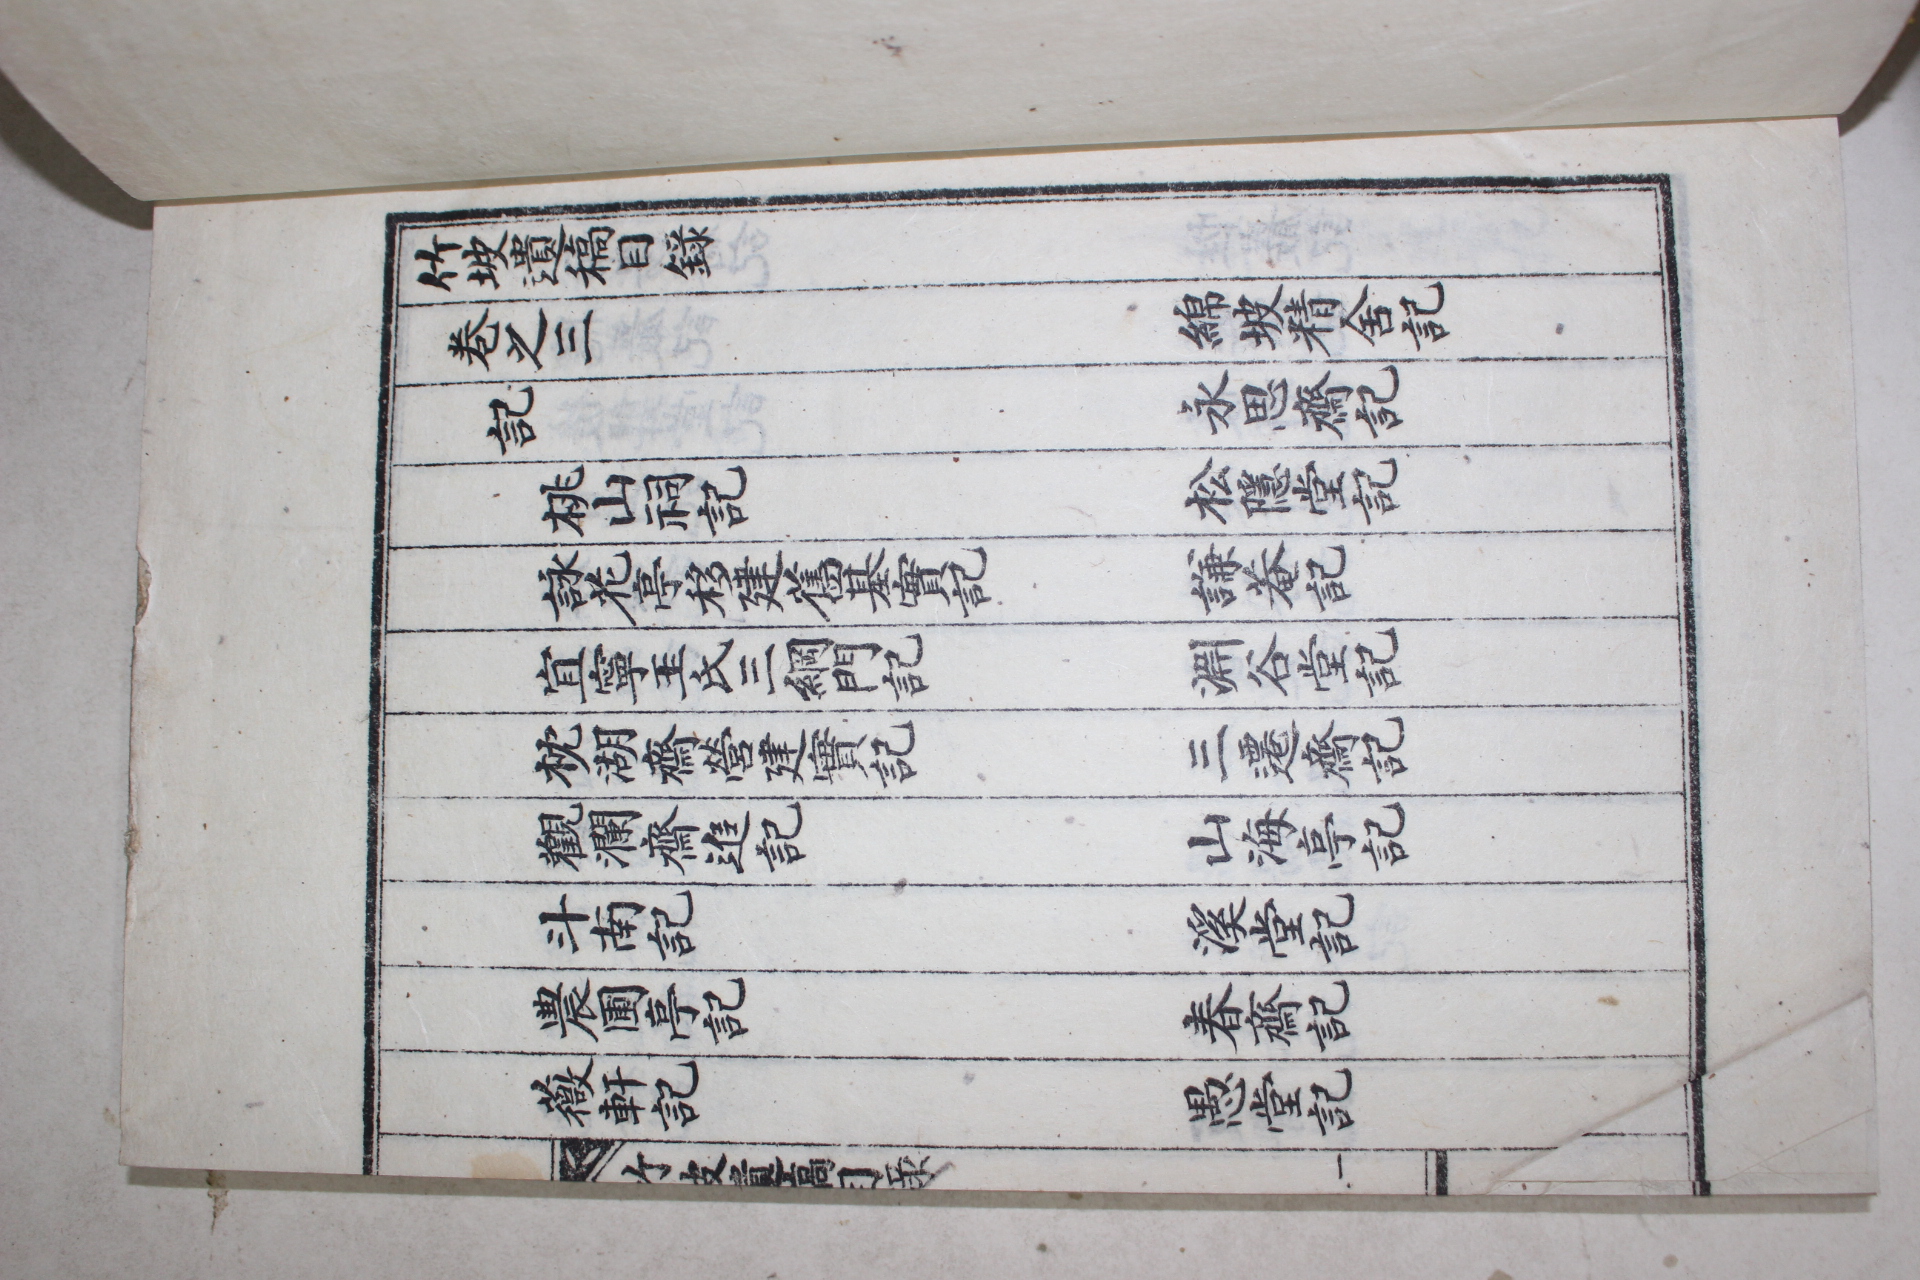 竹坡遺稿目錄
卷之三　綿坡精舍記
記　永思齋記
桃山祠記　松隱堂記
詠花亭移建舊基實記　謙菴記
宜寧玉氏三綱門記　淵谷堂記
枕湖齋營建實記　三遷齋記
觀瀾齋追記　山海亭記
斗南記　溪堂記
農圃亭記　春齋記
薇軒記　愚堂記
竹坡遺稿目錄　一